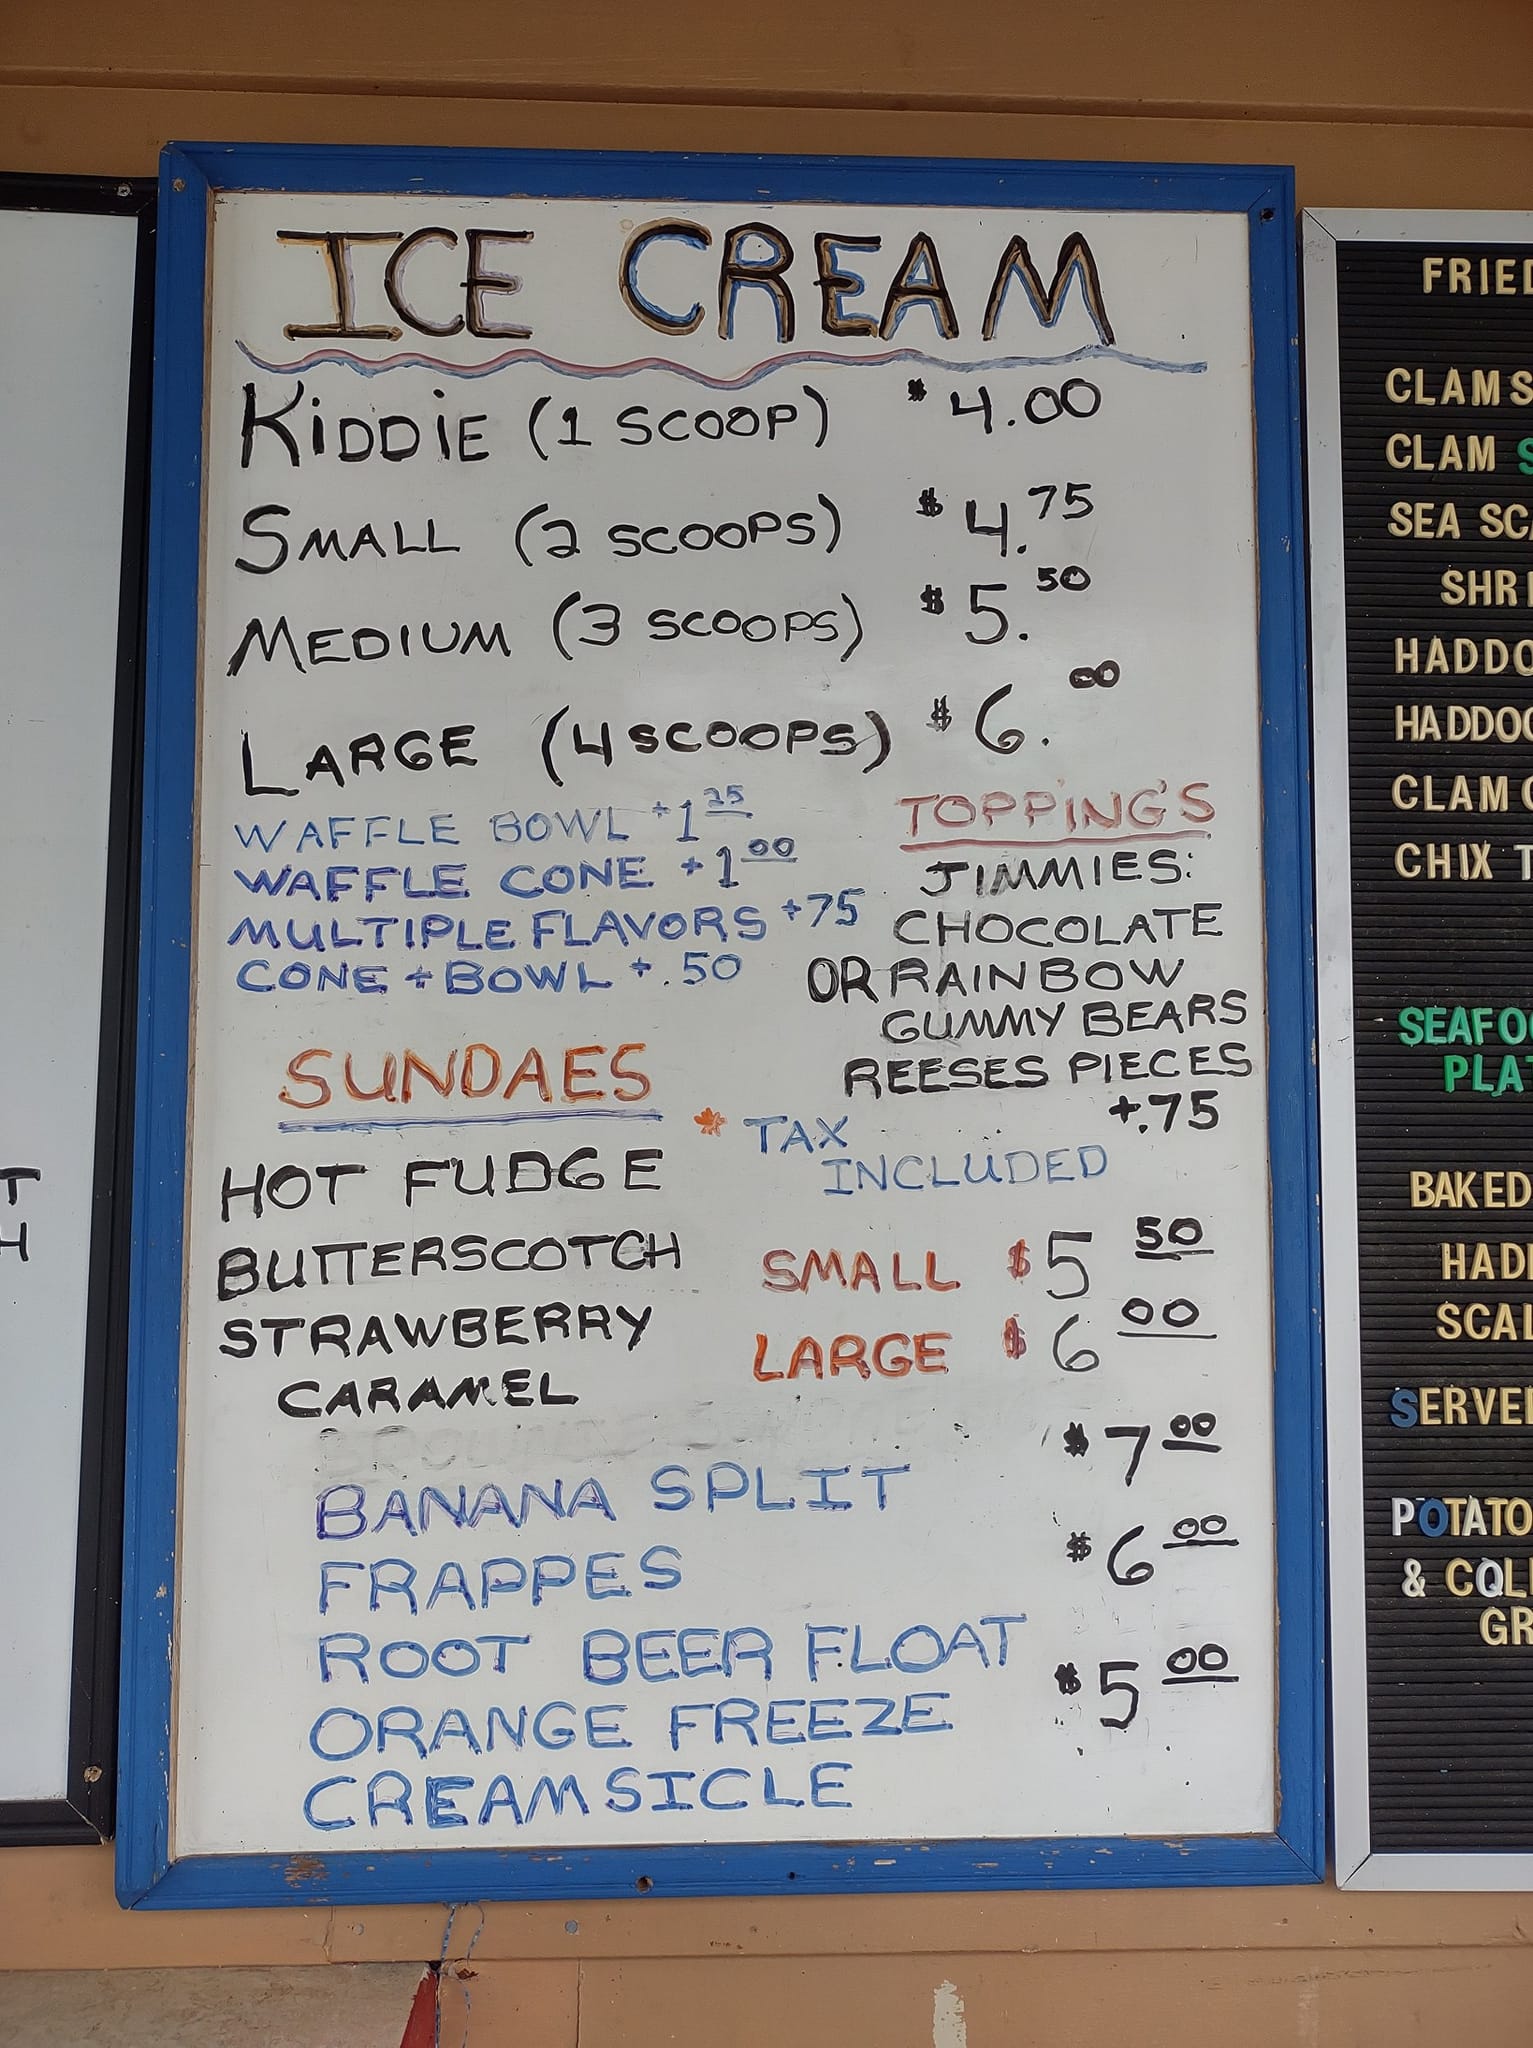 ICE CREAM
KIDDIE (1 SCOOP) $4.00
SMALL (2 SCOOPS) $4.75
MEDIUM (3 SCOOPS) $5.50
LARGE (4 SCOOPS) $6.00
WAFFLE BOWL +1 25
WAFFLE CONE +1 00
MULTIPLE FLAVORS +75
CONE + BOWL +.50
TOPPING'S
JIMMIES:
CHOCOLATE
OR RAINBOW
GUMMY BEARS
REESES PIECES
+.75
* TAX
INCLUDED
SUNDAES
HOT FUDGE
BUTTERSCOTCH
STRAWBERRY
CARAMEL
SMALL $5 50
LARGE $6 00
BANANA SPLIT $7 00
FRAPPES $6 00
ROOT BEER FLOAT $5 00
ORANGE FREEZE
CREAMSICLE
T
H
FRIED
CLAMS
CLAM S
SEA SC
SHRI
HADDO
HADDOC
CLAM C
CHIX T
SEAFOO
PLAT
BAKED
HADD
SCAL
SERVED
POTATO
& COL
GR